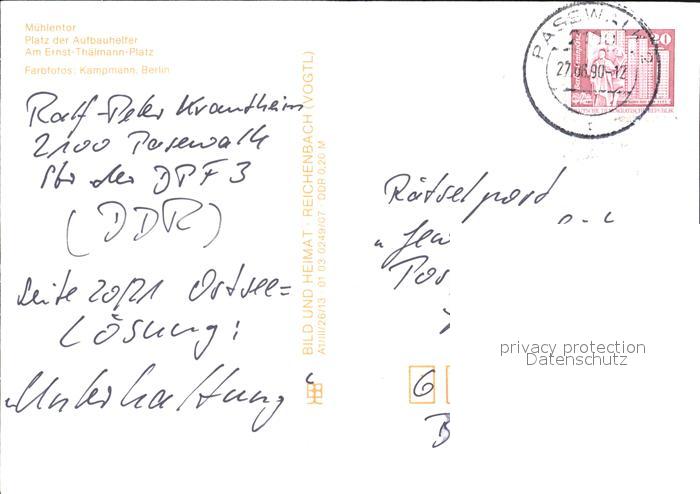 Mühlentor
Platz der Aufbauhelfer
Am Ernst-Thälmann-Platz
Farbfotos: Kampmann, Berlin
Ralf-Peter Krautheim
2100 Pasewalk
Str der DPF 3
(DDR)
Seite 20/21 Ostsee=
Lösung:
"Unterhaltung"
BILD UND HEIMAT · REICHENBACH (VOGTL)
A1/III/26/13 01 03 0249/07 DDR 0,20 M
PASEWALK 2
27.06.90-12
20
Rätselpost
Pos
6
B
privacy protection
Datenschutz